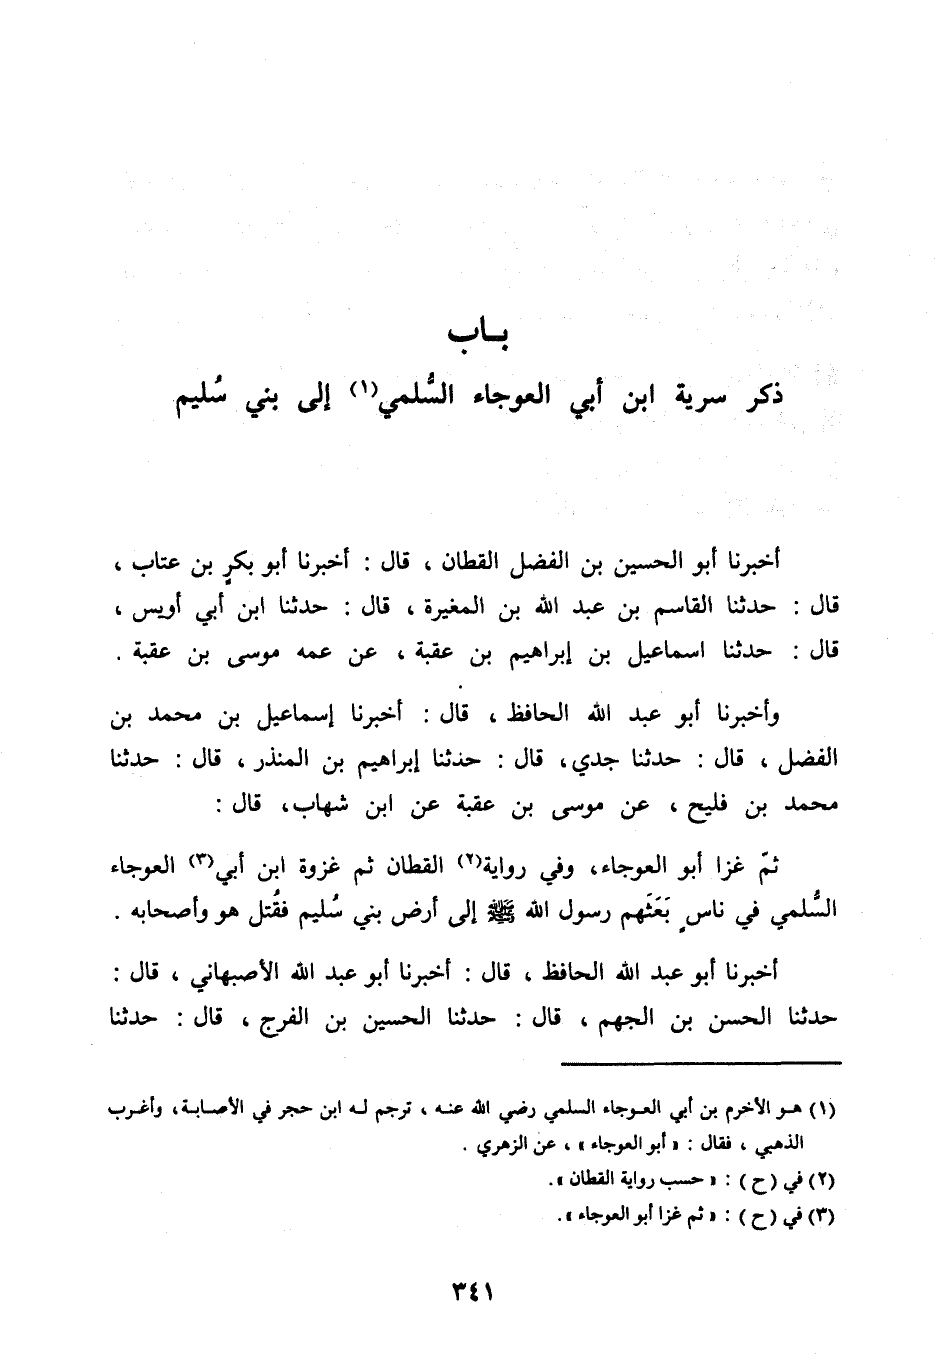 بـاب
ذكر سرية ابن أبي العوجاء السُّلمي(١) إلى بني سُليم
أخبرنا أبو الحسين بن الفضل القطان ، قال : أخبرنا أبو بكرٍ بن عتاب ،
قال : حدثنا القاسم بن عبد الله بن المغيرة ، قال : حدثنا ابن أبي أويس ،
قال : حدثنا اسماعيل بن إبراهيم بن عقبة ، عن عمه موسى بن عقبة .
وأخبرنا أبو عبد الله الحافظ ، قال : أخبرنا إسماعيل بن محمد بن
الفضل ، قال : حدثنا جدي، قال : حدثنا إبراهيم بن المنذر ، قال : حدثنا
محمد بن فليح ، عن موسى بن عقبة عن ابن شهاب، قال :
ثمّ غزا أبو العوجاء، وفي رواية(٢) القطان ثم غزوة ابن أبي(٣) العوجاء
السُّلمي في ناسٍ بَعَثَهم رسول الله ﷺ إلى أرض بني سُليم فقُتل هو وأصحابه .
أخبرنا أبو عبد الله الحافظ ، قال : أخبرنا أبو عبد الله الأصبهاني ، قال :
حدثنا الحسن بن الجهم ، قال : حدثنا الحسين بن الفرج ، قال : حدثنا
(١) هـو الأخرم بن أبي العـوجاء السلمي رضي الله عنـه ، ترجم لـه ابن حجر في الأصـابـة، وأغـرب
الذهبي ، فقال : « أبو العوجاء » ، عن الزهري .
(٢) في (ح) : « حسب رواية القطان ».
(٣) في (ح) : « ثم غزا أبو العوجاء ».
٣٤١